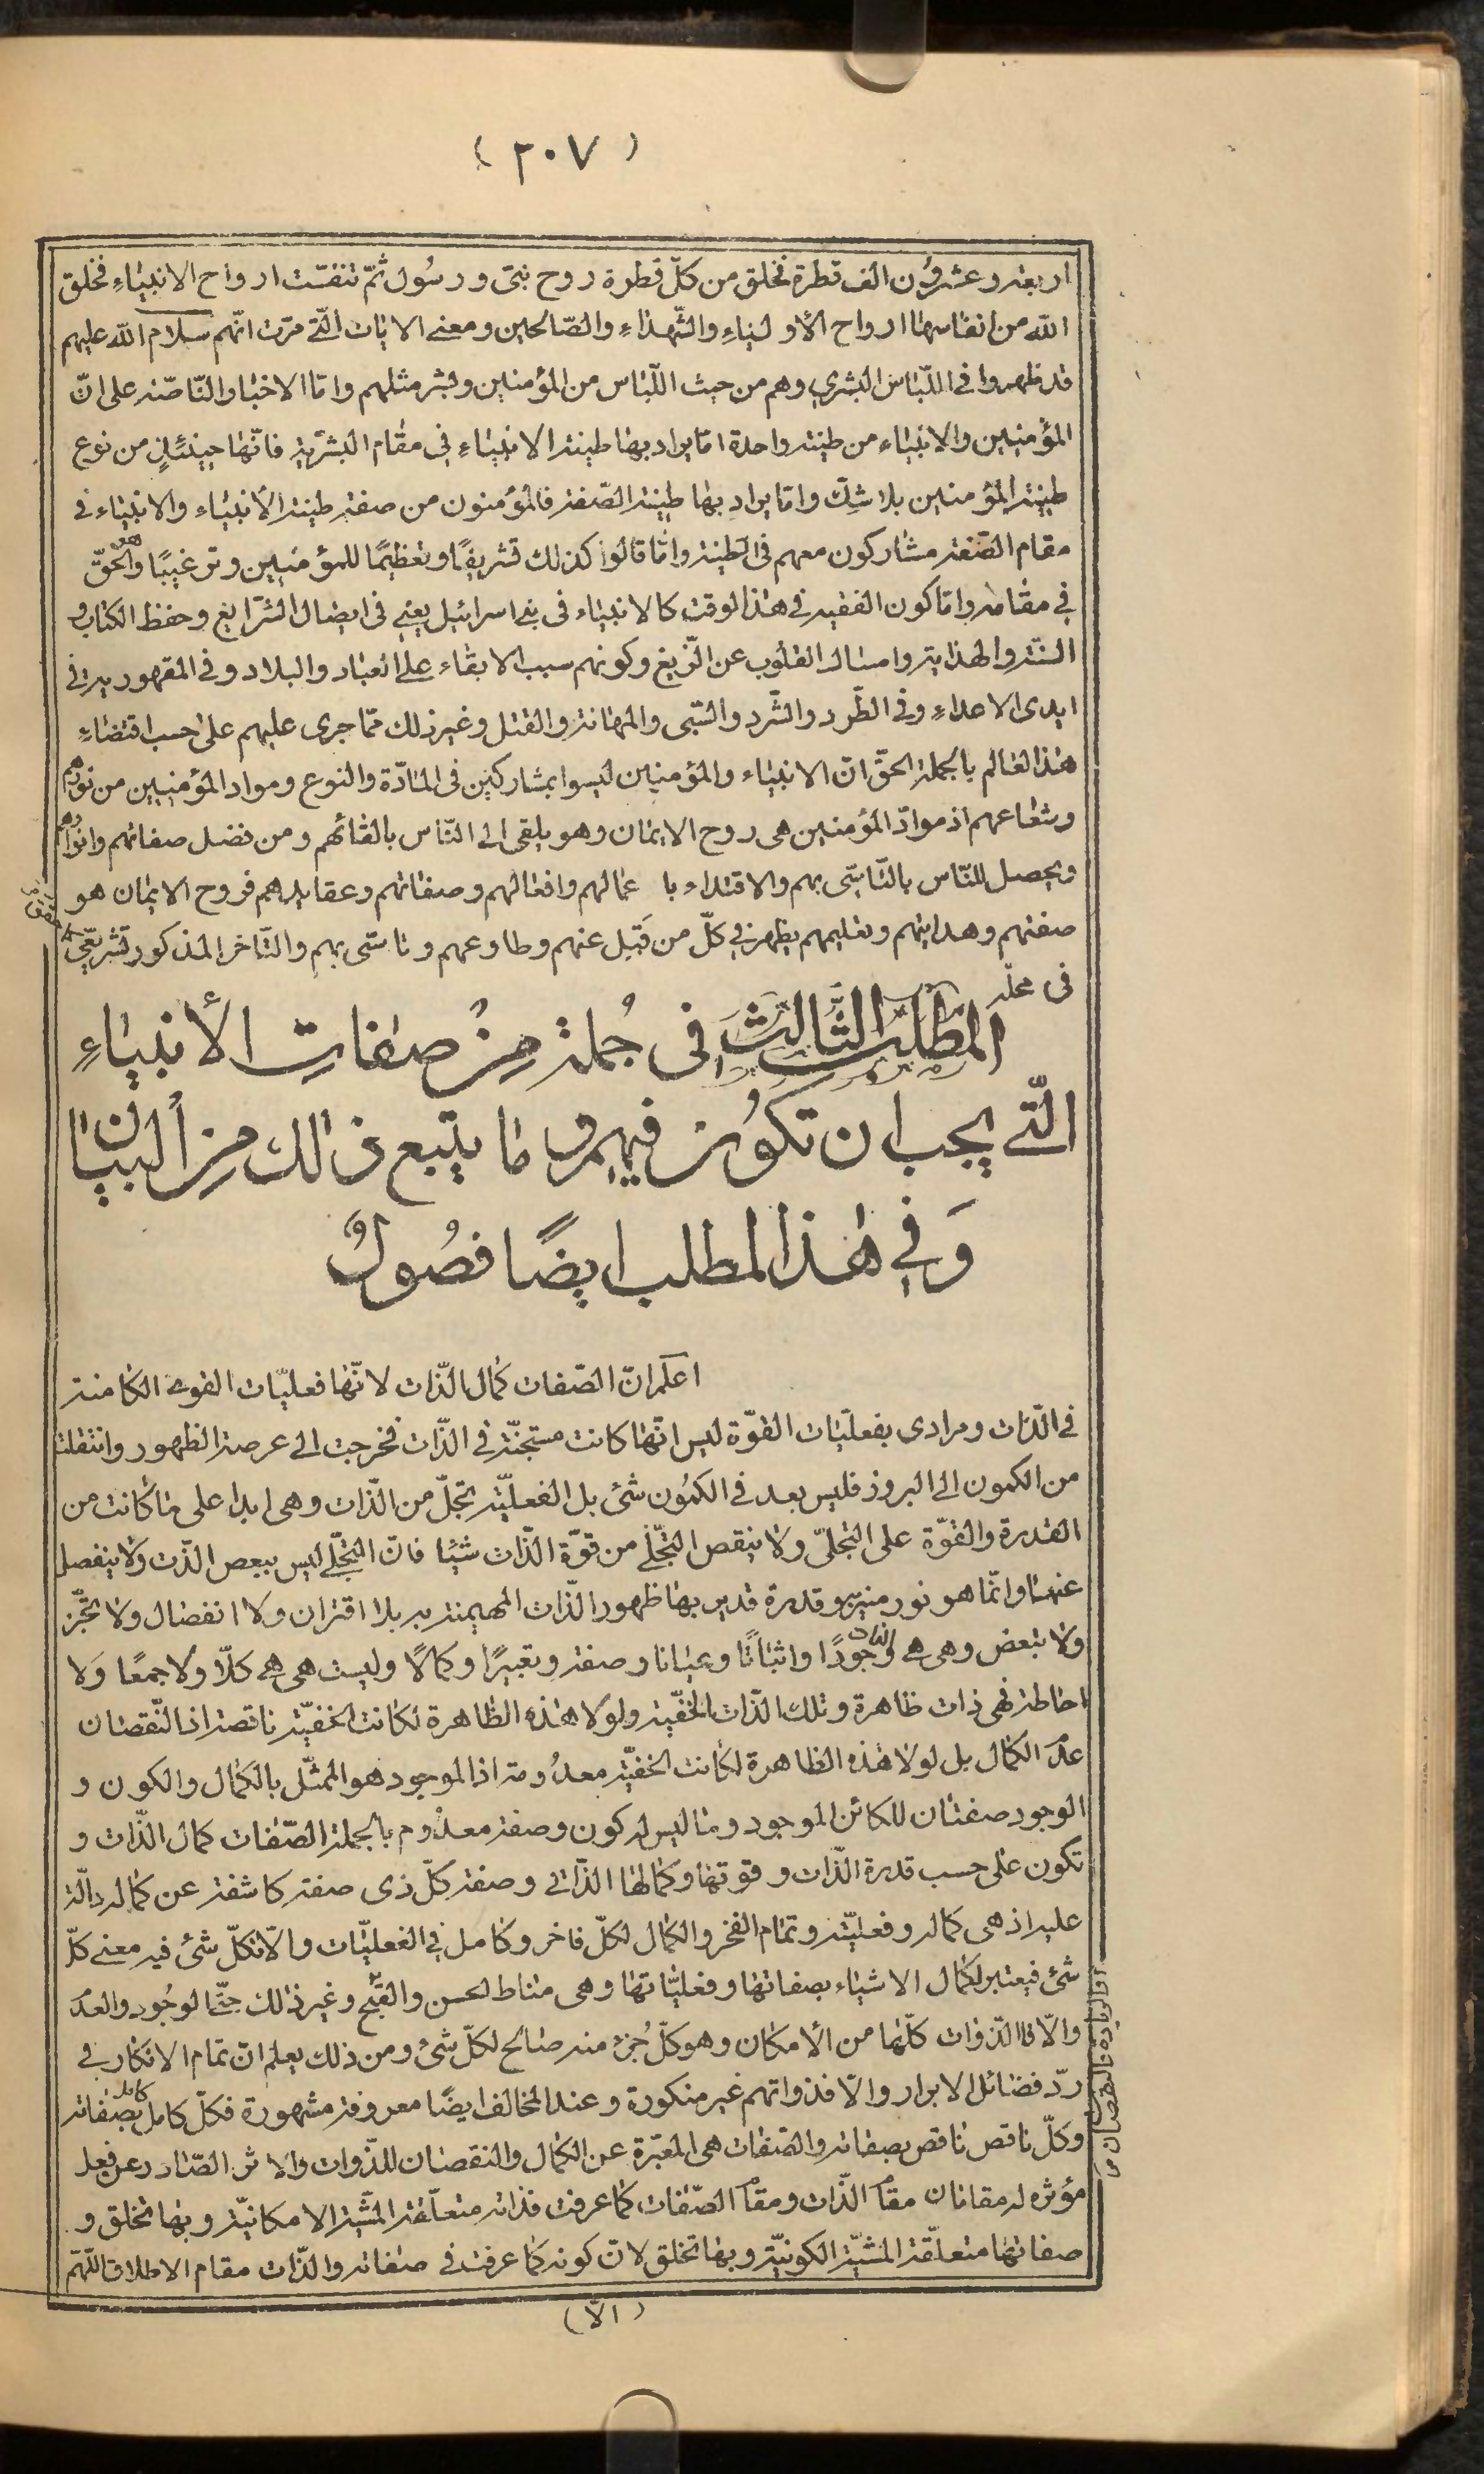 (٢٠٧)
اربعة وعشرون الف قطرة فخلق من كلّ قطرة روح نبيّ ورسُول ثمّ تنفّست ارواح الانبياءِ فخلق
الله من انفاسها ارواح الأولياءِ والشّهداءِ والصّالحين ومعنى الايات الّتي مرّت انّهم سلام الله عليهم
قد ظهروا في اللّباس البشري وهم من حيث اللّباس من المؤمنين وبشر مثلهم وامّا الاخبار النّاصّة على انّ
المؤمنين والانبياء من طينة واحدة امّا يراد بها طينة الانبياءِ في مقام البشريّة فانّها حينئذٍ من نوع
طينة المؤمنين بلا شكّ وامّا يراد بها طينة الصّفة فالمؤمنون من صفة طينة الأنبياء والانبياء في
مقام الصّفة مشاركون معهم في الطينة وانّما قالوا كذلك تشريفًا وتعظيمًا للمؤمنين وترغيبًا وهو الحقّ
في مقامه وامّا كون الفقيه في هذا الوقت كالانبياء في بني اسرائيل يعني في ايصال الشّرايع وحفظ الكتاب و
السنّة والهداية وامساك القلوب عن الزّيغ وكونهم سبب الابقاء على العباد والبلاد وفي المقهورية في
ايدى الاعداءِ وفي الطّرد والشّرد والسّبى والمهانة والقتل وغير ذلك ممّا جرى عليهم على حسب اقتضاءِ
هذا العالم بالجملة الحقّ انّ الانبياء والمؤمنين ليسوا بمشاركين في المادّة والنوع ومواد المؤمنين من نورهم
وشعاعهم اذ موادّ المؤمنين هى روح الايمان وهو يلقى الى النّاس بالقائهم ومن فضل صفاتهم وانوارهم
ويحصل للنّاس بالتّاسّى بهم والاقتداء باعمالهم وافعالهم وصفاتهم وعقايدهم فروح الايمان هو
صفتهم وهدايتهم وتعليمهم يظهر في كلّ من قَبِل عنهم وطاوعهم وتاسّى بهم والتّاخر المذكور تشريعيّ
في محلّه
المَطلبُ الثَّالثُ في جُملة مِنْ صفاتِ الأنبياءِ
الّتي يجب ان تكوُن فيهم وما يتبع ذالك مِن البيان
وَفي هٰذا المطلب ايضًا فصُولٌ
اعلم انّ الصّفات كمال الذّات لانّها فعليّات القوى الكامنة
في الذّات ومرادى بفعليّات القوّة ليس انّها كانت مستجنّة في الذّات فخرجت الى عرصة الظهور وانتقلت
من الكمون الى البروز فليس بعد في الكمُون شئ بل الفعليّة تجلّ من الذّات وهى ابدا على ما كانت من
القدرة والقوّة على التجلّي ولا ينقص التجلّي من قوّة الذّات شيئا فانّ التجلّي ليس ببعض الذّت ولا ينفصل
عنها وانّما هو نور منير وقدرة قدير بها ظهور الذّات المهيمنة به بلا اقتران ولا انفصال ولا تجزّ
ولا بتعض وهى هى وجودًا واثباتًا وعيانا وصفة وتعبيرًا وكمالًا وليست هى هى كلّا ولا جمعًا وَلا
احاطة فهى ذات ظاهرة وتلك الذّات الخفيّة ولولا هذه الظاهرة لكانت الخفيّة ناقصة اذ النّقصان
عدم الكمال بل لولا هذه الظاهرة لكانت الخفيّة معدُومة اذ الموجود هو الممثّل بالكمال والكون و
الوجود صفتان للكائن الموجود وما ليس له كون وصفة معدُوم بالجملة الصّفات كمال الذّات و
تكون على حسب قدرة الذّات وقوّتها وكمالها الذّاتي وصفة كلّ ذى صفة كاشفة عن كماله دالّة
عليه اذ هى كماله وفعليّته وتمام الفخر والكمال لكلّ فاخر وكامل في الفعليّات والّا فكلّ شئ فيه معنى كلّ
شئ فيعتبر لكمال الاشياء بصفاتها وفعليّاتها وهى مناط لحسن والقبُح وغير ذالك حتّى الوجُود والعدم
والّا فالذّوات كلّها من الأمكان وهو كلّ جُزء منه صالح لكلّ شئ ومن ذلك يعلم انّ تمام الانكار في
ردّ فضائل الابرار والّا فذواتهم غير منكورة وعند المخالف ايضًا معروفة مشهورة فكلّ كامل كامل بصفاته
وكلّ ناقص ناقص بصفاته والصّفات هى المعبّرة عن الكمال والنقصان للذّوات والاثر الصّادر عن فعل
مؤثره له مقامان مقام الذّات ومقام الصّفات كما عرفت فذاته متعلّقة المشيّة الامكانيّة وبها تخلق و
صفاتها متعلّقة المشيّة الكونيّة وبها تخلق لانّ كونه كما عرفت في صفاته والذّات مقام الاطلاق اللّهمّ
(الّا)